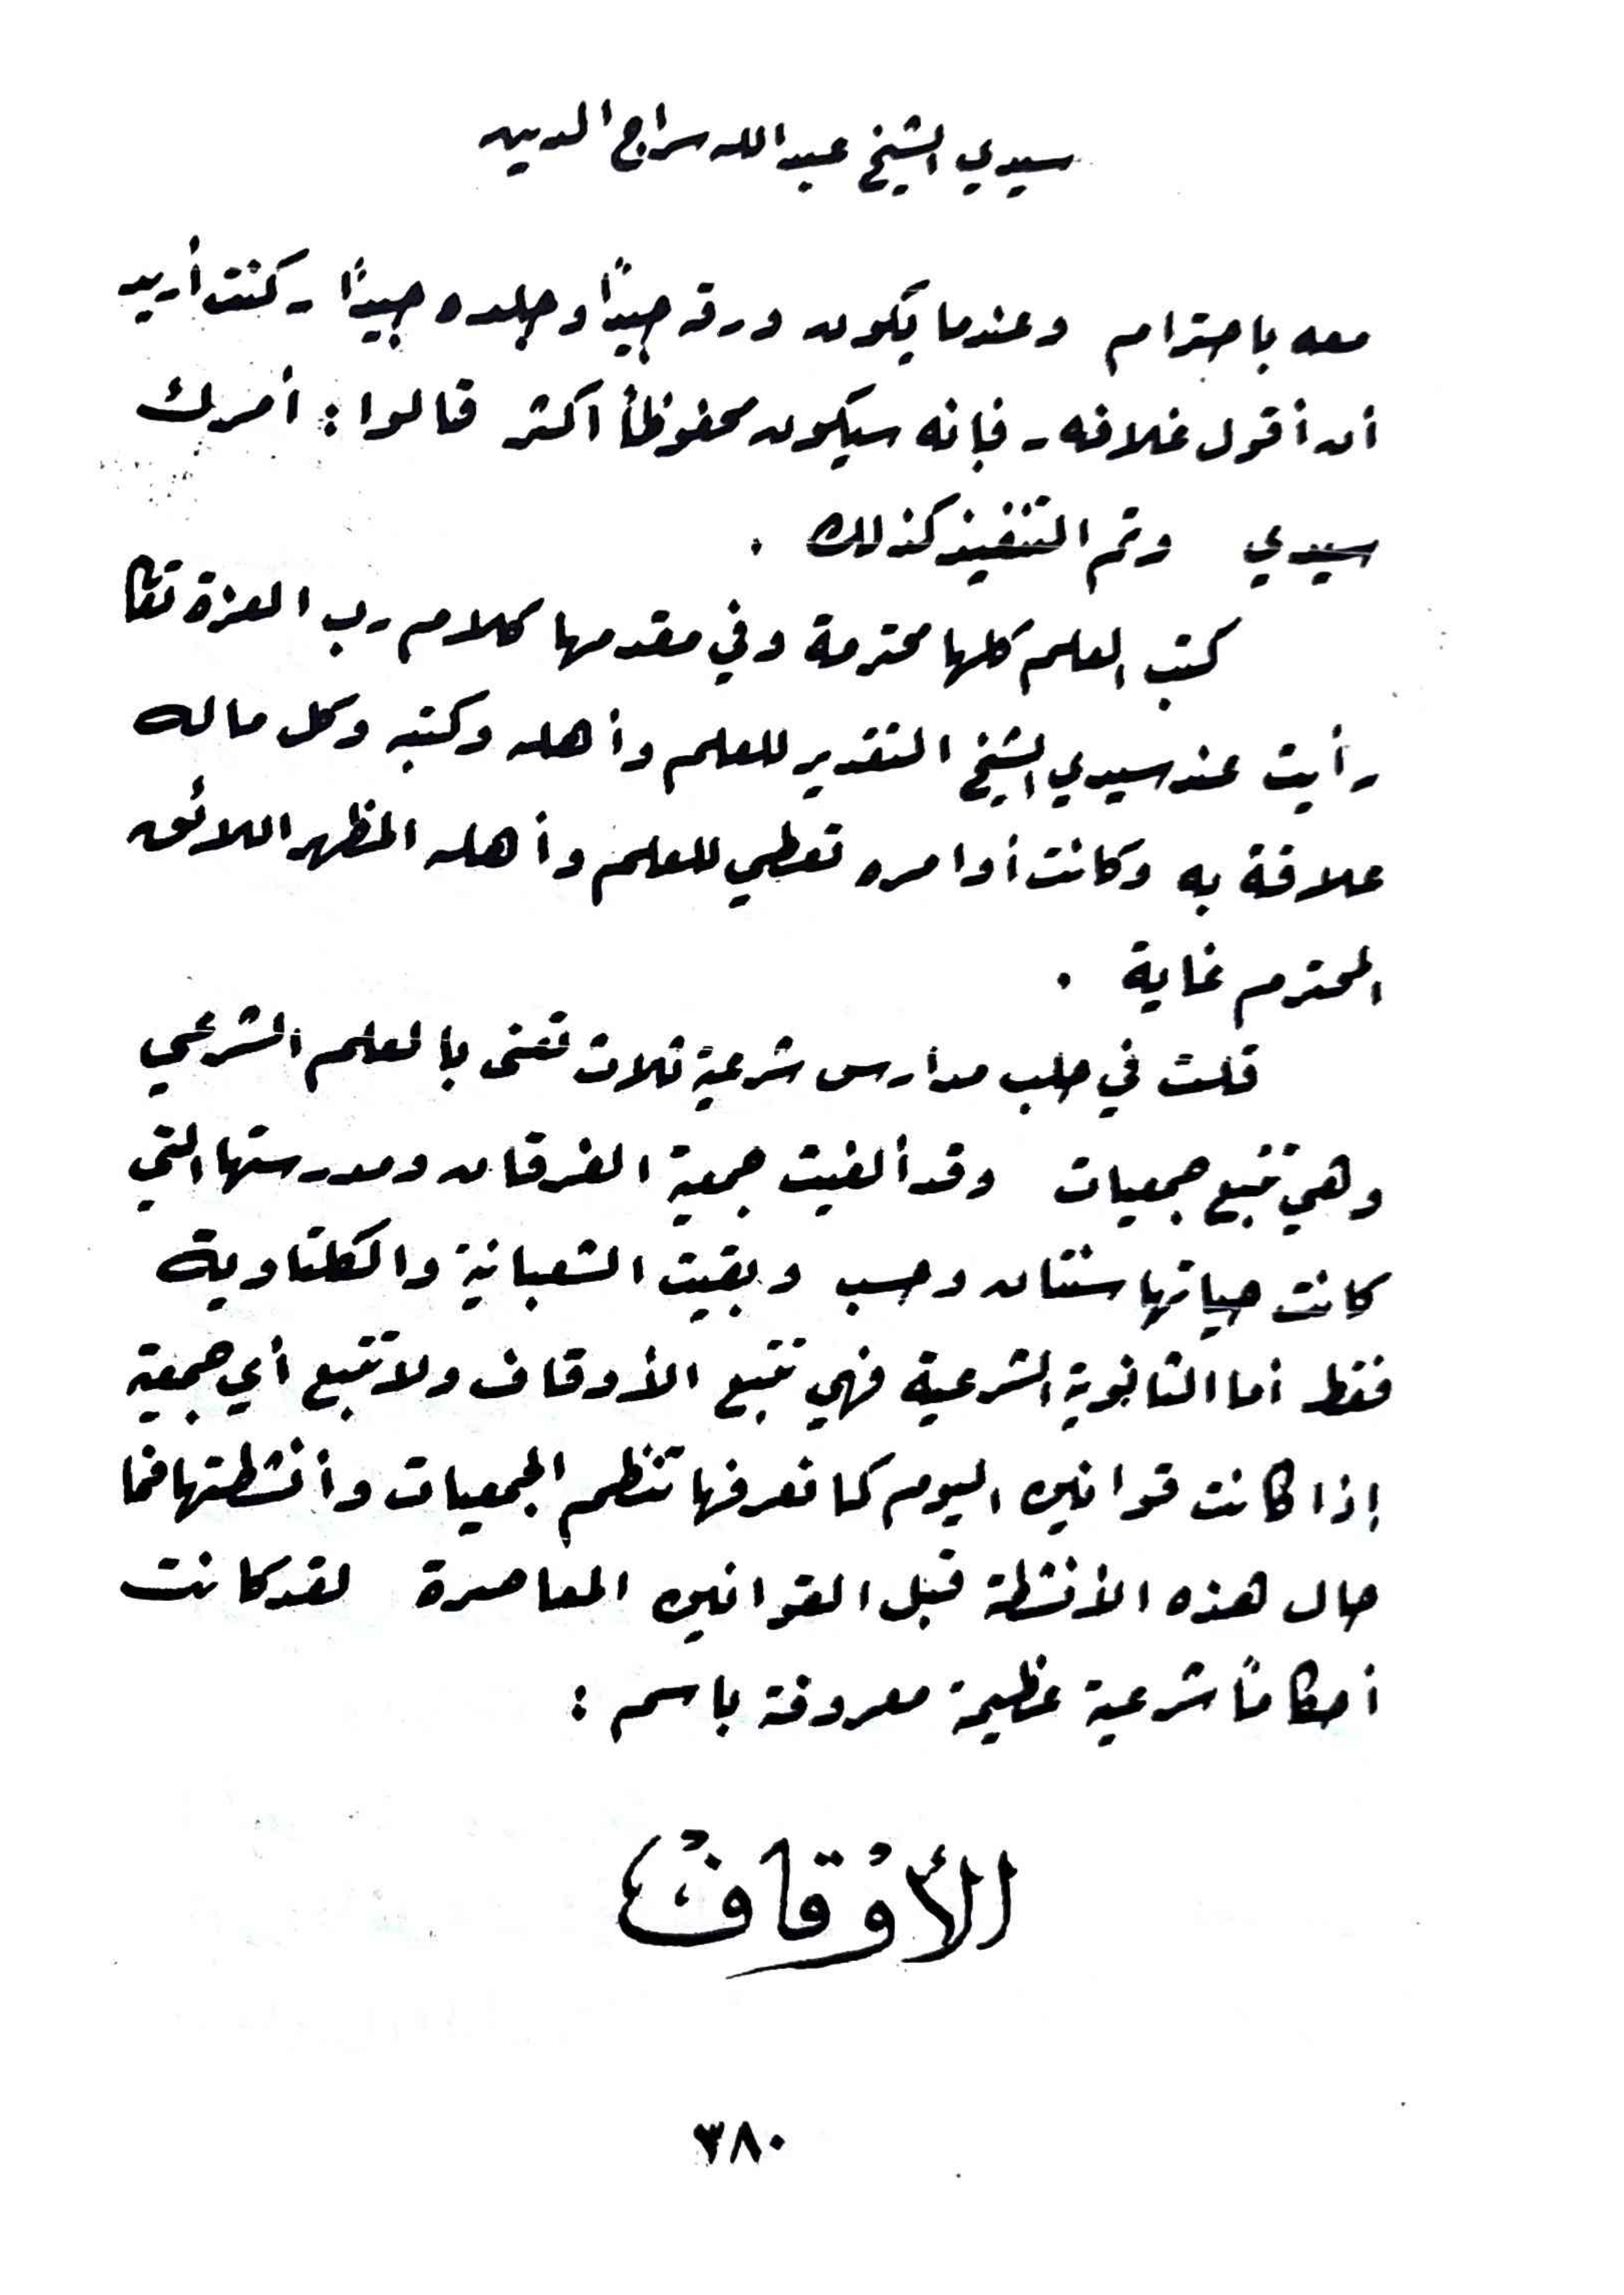 سيدي الشيخ عبد الله سراج الدين
معه باحترام وعندما يكون ورقه جيداً وجلده جيداً - كنت أريد
أن أقول غلافه - فإنه سيكون محفوظاً أكثر قالوا : أمرك
سيدي وتم التنفيذ كذلك .
كتب العلم كلها محترمة وفي مقدمها كلام رب العزة تعالى
رأيت عند سيدي الشيخ التقدير للعلم وأهله وكتبه وكل ماله
علاقة به وكانت أوامره تعطي للعلم وأهله المظهر اللائق
المحترم غاية .
قلت في حلب مدارس شرعية ثلاث تعنى بالعلم الشرعي
وهي تتبع جمعيات وقد ألغيت جمعية الفرقان ومدرستها التي
كانت حياتها سنتان وحسب وبقيت الشعبانية والكلتاوية
فقط أما الثانوية الشرعية فهي تتبع الأوقاف ولا تتبع أي جمعية
إذا كانت قوانين اليوم كما نعرفها تنظم الجمعيات وأنشطتها فما
حال هذه الأنشطة قبل القوانين المعاصرة لقد كانت
أحكاماً شرعية عظيمة معروفة باسم :
الأوْقافْ
٣٨٠